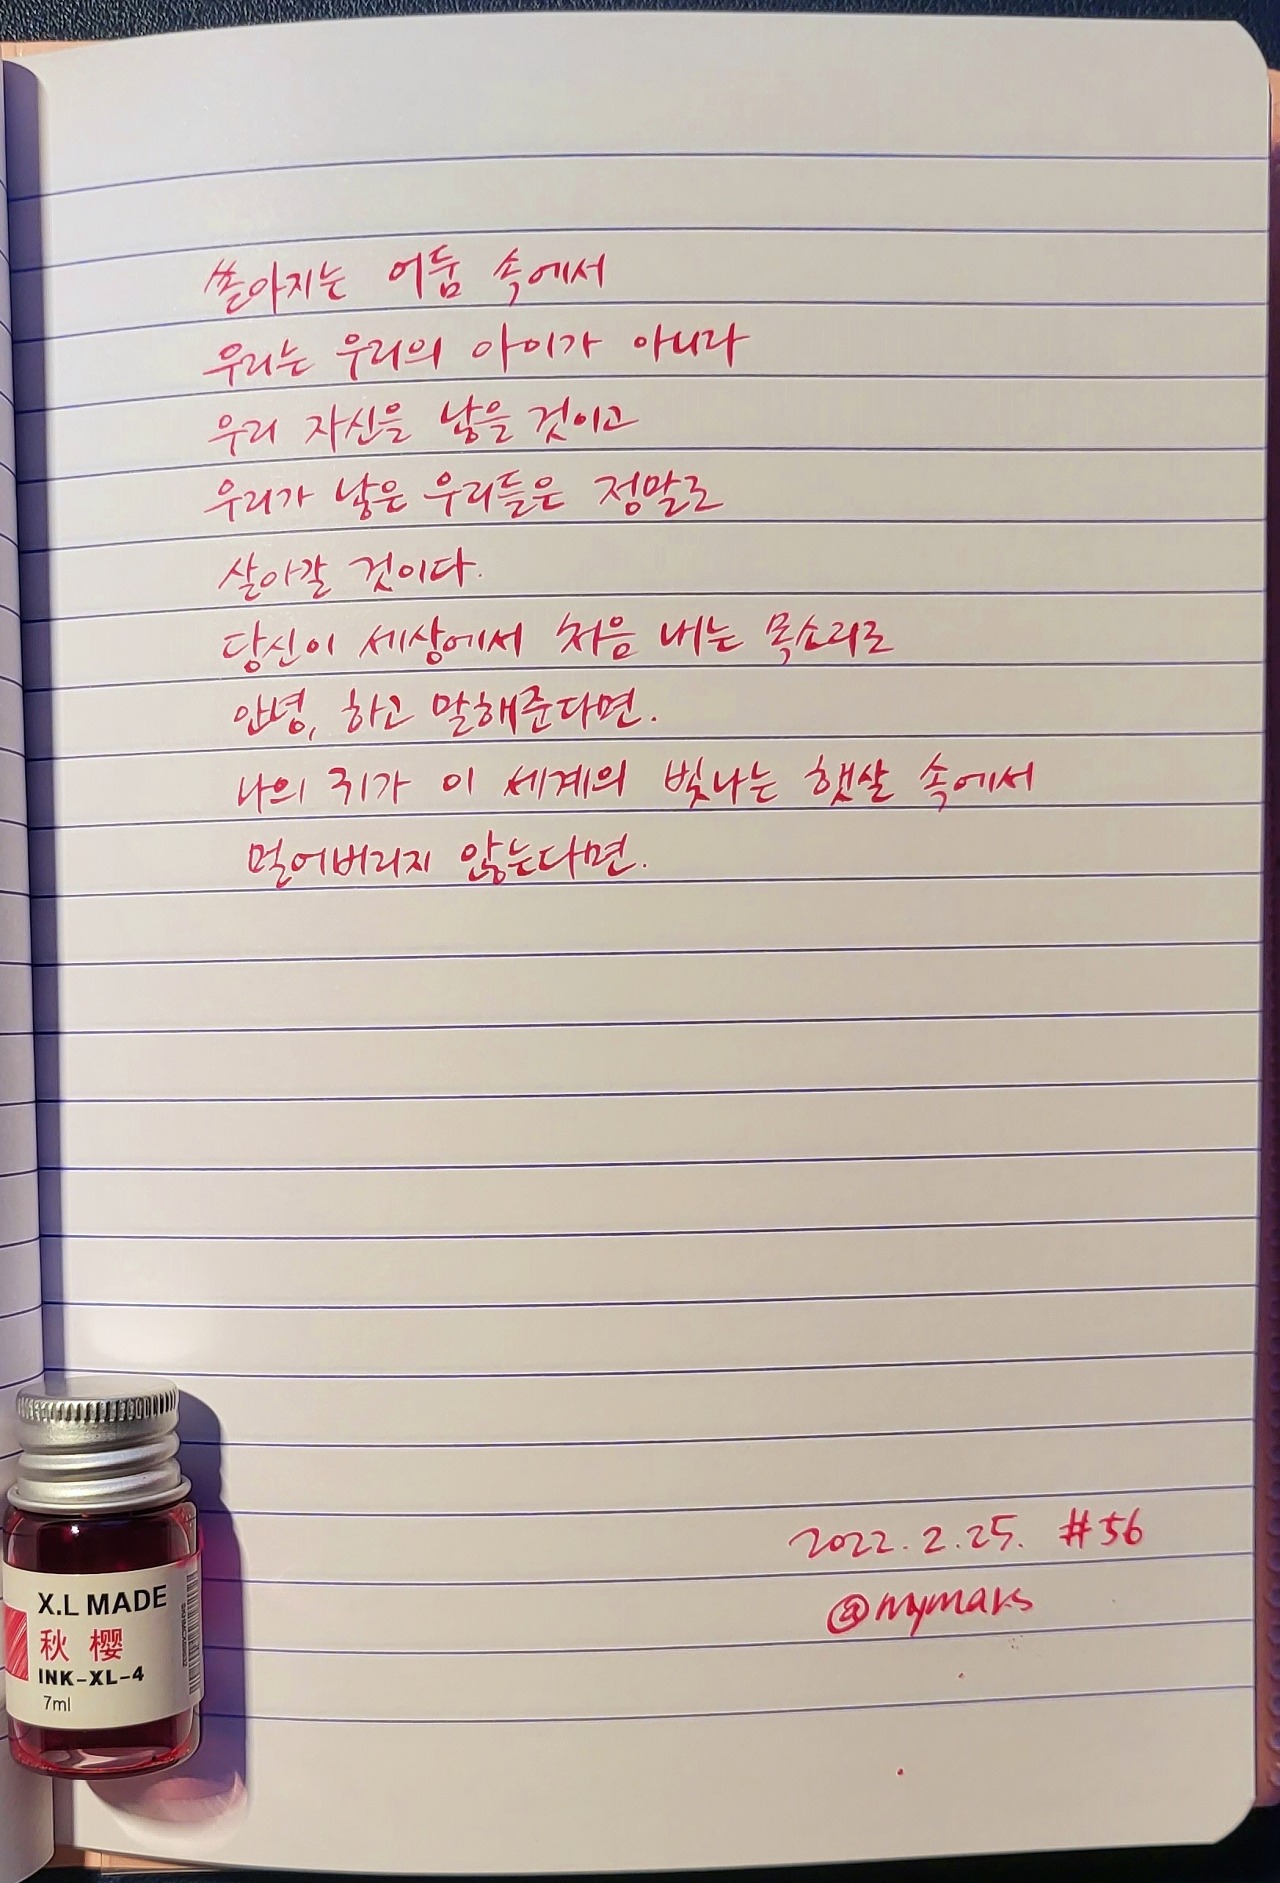 쏟아지는 어둠 속에서
우리는 우리의 아이가 아니라
우리 자신을 낳을 것이고
우리가 낳은 우리들은 정말로
살아갈 것이다.
당신이 세상에서 처음 내는 목소리로
안녕, 하고 말해준다면.
나의 귀가 이 세계의 빛나는 햇살 속에서
멀어버리지 않는다면.
2022.2.25. #56
@mymars
X.L MADE
秋樱
INK-XL-4
7ml